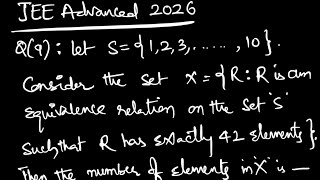 JEE Advanced 2026
Q(9): let S={1,2,3,......,10}.
Consider the set X={R:R is an
equivalence relation on the set 'S'
such that R has exactly 42 elements}.
Then the number of elements in X is —